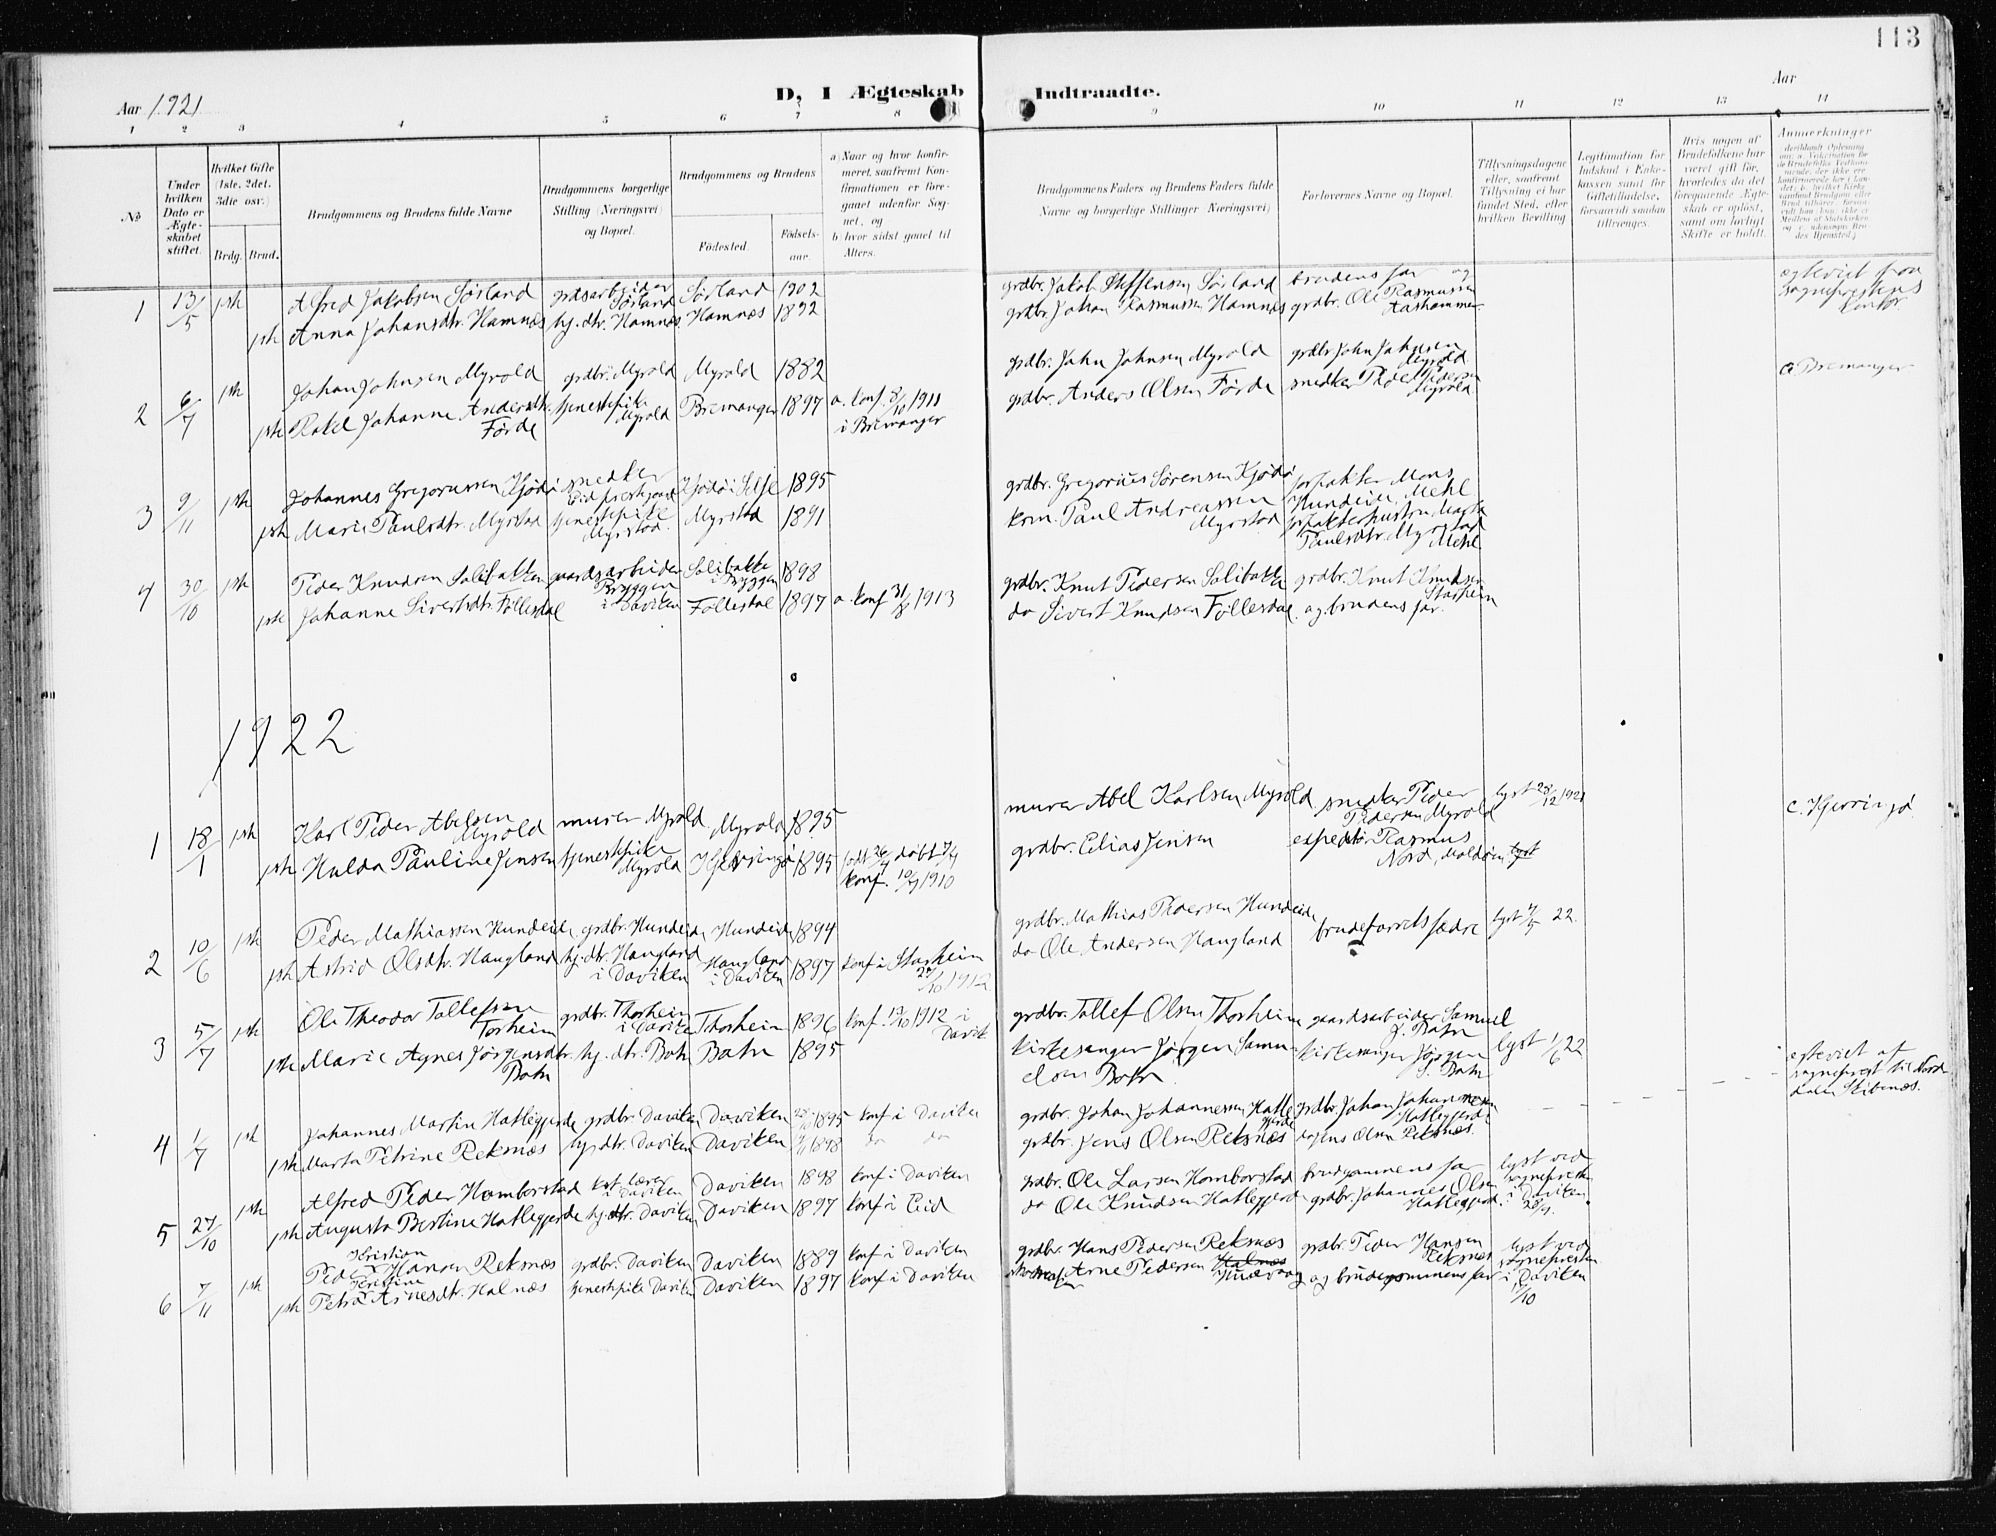 113
Aar 1921
D, I Ægteskab Indtraadte.
Aar
1 2 3 4 5 6 7 8 9 10 11 12 13 14
No
Under hvilken Dato er Ægteskabet stiftet.
Hvilket Gifte (1ste, 2det, 3die osv.)
Brdg. Brud.
Brudgommens og Brudens fulde Navne
Brudgommens borgerlige Stilling (Næringsvei) og Bopæl.
Brudgommens og Brudens
Fødested. Fødsels-aar.
a) Naar og hvor konfirmeret, saafremt Konfirmationen er foregaaet udenfor Sognet, og
b) hvor sidst gaaet til Alters.
Brudgommens Faders og Brudens Faders fulde Navne og borgerlige Stillinger (Næringsvei)
Forlovernes Navne og Bopæl.
Tillysningsdagene eller, saafremt Tillysning ei har fundet Sted, efter hvilken Bevilling
Legitimation for Indskud i Enkekassen samt for Giftetilladelse, forsaavidt saadan tiltrænges.
Hvis nogen af Brudefolkene har været gift før, hvorledes da det foregaaende Ægteskab er opløst, samt om lovligt Skifte er holdt.
Anmerkninger
1 13/5 1ste Alfred Jakobsen Sørland grdsarbeider Sørland Sørland 1902 grdbr. Jakob Steffensen Sørland brudens far og egteviet paa sogneprestens kontor.
1ste Anna Johansdtr. Hamnes hj. dtr. Hamnes Hamnes 1892 grdbr. Johan Rasmussen Hamnes grdbr. Ole Rasmussen Aashammer
2 6/7 1ste Johan Johnsen Myrold grdbr. Myrold Myrold 1882 grdbr. John Johnsen Myrold grdbr John Johnsen Myrold c. Bremanger
1ste Rakel Johanne Andersdtr. Førde tjenestepike Myrold Bremanger 1897 a. konf. 8/10 1911 i Bremanger grdbr. Anders Olsen Førde snedker Peder Pedersen Myrold
3 9/11 1ste Johannes Gregoriussen Kjødø snedker Kjødø i Selje 1895 grdbr. Gregorius Sørensen Kjødø forpakter Mons Hundeide, Mehl
1ste Marie Paulsdtr. Myrstad tjenestepike Myrstad. Myrstad 1891 Paul Andreassen Myrstad forpakterhustru Marta Paulsdtr. Myrstad Mehl
4 30/10 1ste Peder Knudsen Solibakken gaardsarbeider Bryggen i Daviken Solibakke i Bryggen 1898 grdbr. Knut Pedersen Solibakke grdbr. Knut Knudsen Starheim
1ste Johanne Sivertsdtr. Føllesdal Føllesdal 1897 a. konf 31/8 1913 do Sivert Knudsen Føllesdal og brudens far.
1922
1 18/1 1ste Karl Peder Abelsen Myrold murer Myrold Myrold 1895 murer Abel Karlsen Myrold snedker Peder Pedersen Myrold lyst 28/12 1921 c. Kjerringø
1ste Hulda Pauline Jensen tjenestepike Myrold Kjerringø 1895 født 26/4 døbt 7/7 konf. 10/7 1910 grdbr. Elias Jensen expeditør Rasmus Nord, Moldøen
2 10/6 1ste Peder Mathiassen Hundeide grdbr. Hundeide Hundeide 1894 grdbr. Mathias Pedersen Hundeide brudeparrets fædre lyst 7/5 22.
1ste Astrid Olsdtr. Haugland hj. dtr. Haugland i Daviken Haugland i Daviken 1897 konf i Starheim 29/10 1912 do Ole Andersen Haugland
3 5/7 1ste Ole Theodor Tollefsen Torheim grdbr. Thorheim i Daviken Thorheim 1896 konf. 13/10 1912 i Davik grdbr. Tollef Olsen Thorheim gaardsarbeider Samuel J. Botn
1ste Marie Agnes Jørgensdtr. Botn hj. dtr. Botn Botn 1895 kirkesanger Jørgen Samuelsen Botn kirkesanger Jørgen S. Botn lyst 1/6 22
4 1/7 1ste Johannes Martin Hatlegjerde grdbr. Daviken Daviken 1895 konf i Daviken grdbr. Johan Johannessen Hatlegjerde grdbr. Johan Johannesen Hatlegjerde egteviet af sogneprest til Norddalen Stibenæs.
1ste Marta Petrine Reksnæs hj. dtr. Daviken Daviken 1898 do do grdbr. Jens Olsen Reksnæs do Jens Olsen Reksnæs.
5 27/10 1ste Alfred Peder Homborstad lærer i Daviken Daviken 1898 konf i Daviken grdbr. Ole Larsen Homborstad brudgommens far lyst ved sognepresten i Daviken
1ste Augusta Bertine Hatlegjerde hj. dtr. Daviken Daviken 1897 konf i Eid do Ole Knudsen Hatlegjerde grdbr. Johannes Olsen Hatlegjerde
6 7/11 1ste Peder Kristian Hansen Reksnæs grdbr. Daviken Daviken 1889 konf i Daviken grdbr. Hans Pedersen Reksnæs grdbr. Peder Hansen Reksnæs lyst ved sognepresten i Daviken
1ste Petra Arnesdtr. Halnæs tjenestepike Daviken Daviken 1897 konf i Daviken Arne Pedersen Halnæs og brudgommens far